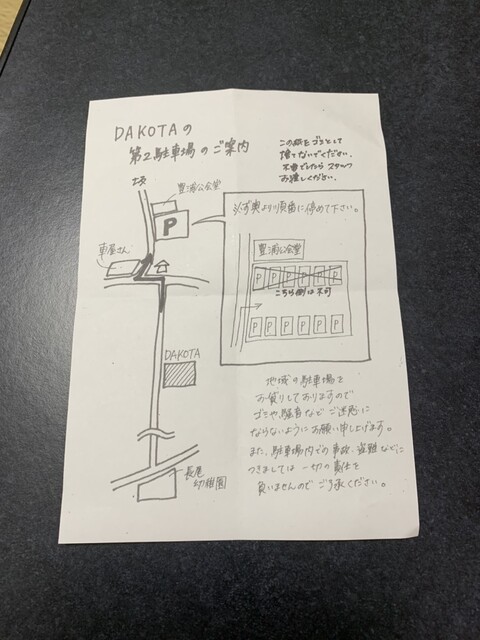 DAKOTAの
第2駐車場のご案内
この紙をゴミとして
捨てないでください。
不要でしたらスタッフ
お渡しください。
坂
豊浦公会堂
P
車屋さん
必ず奥より順番に停めて下さい。
豊浦公会堂
P P P P P P
こちら側は不可
P P P P P P
DAKOTA
長尾
幼稚園
地域の駐車場を
お貸りしておりますので
ゴミや騒音などご迷惑に
ならないようにお願い申し上げます。
また、駐車場内での事故・盗難などに
つきましては一切の責任を
負いませんのでご了承ください。